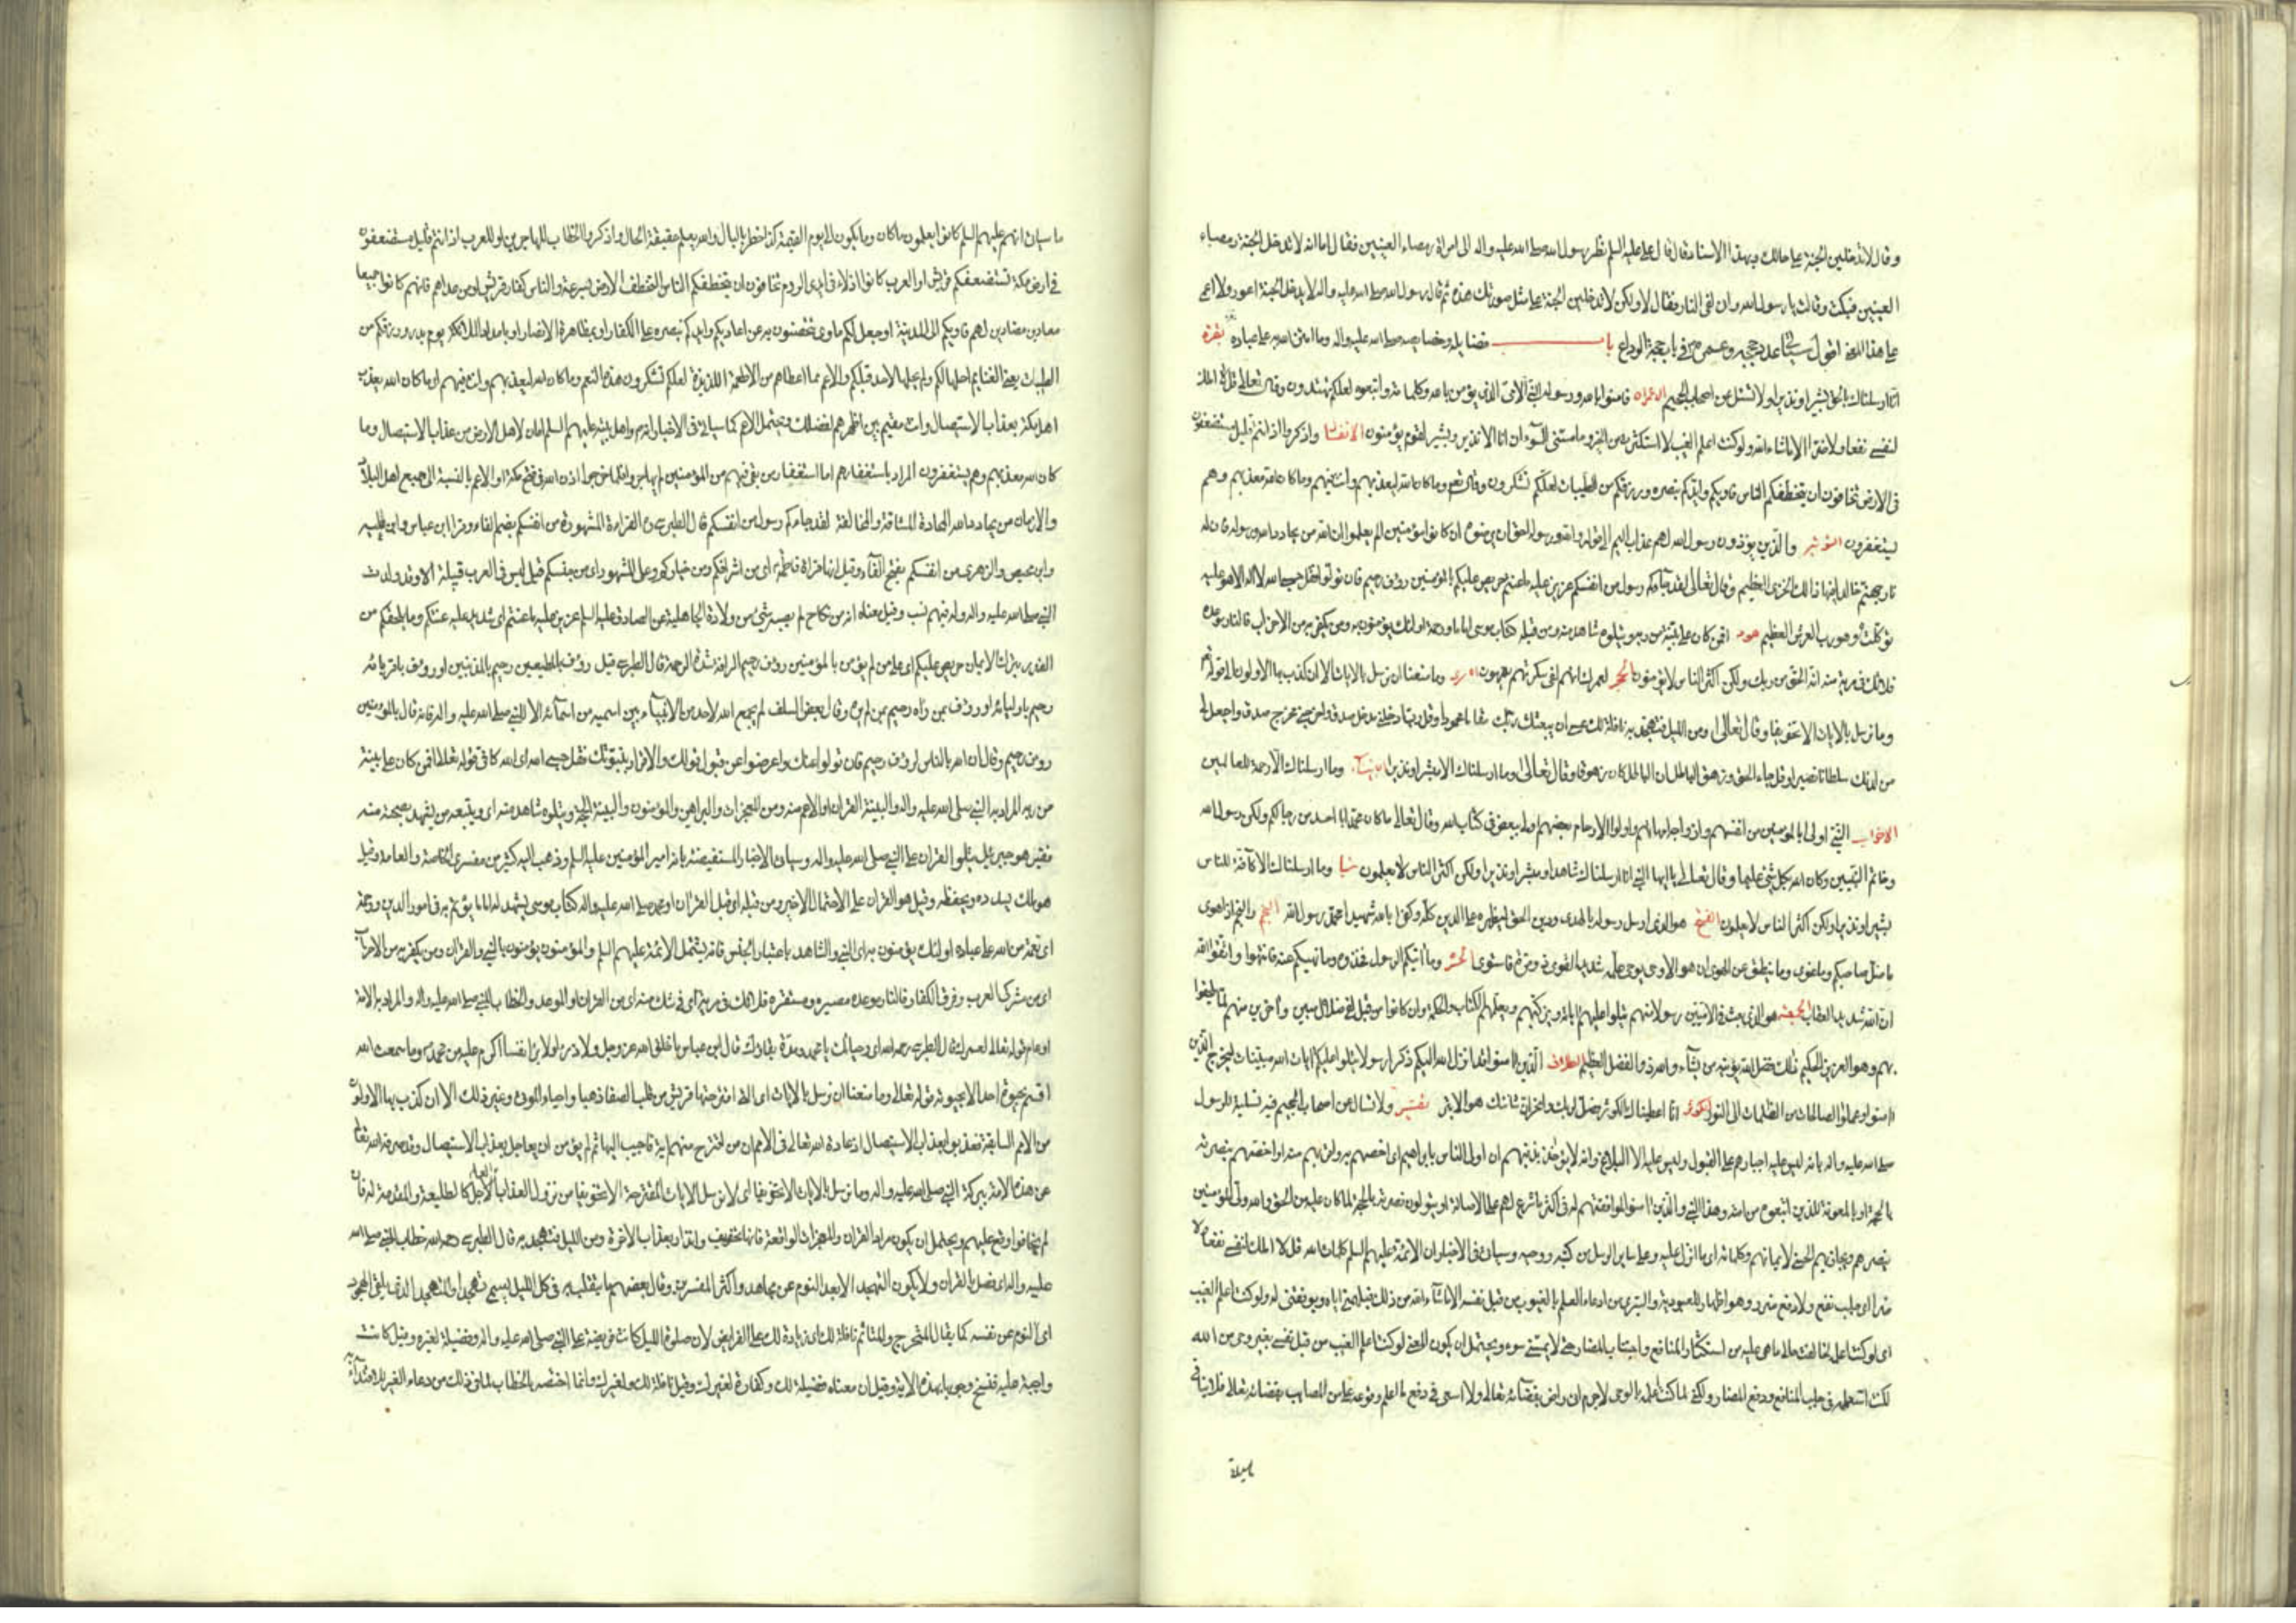 وقال لاتدخلين الجنة على حالك وبهذا الاسناد قال قال علي عليه السلم نظر رسول الله صلى الله عليه واله الى امراة رمصاء العينين فقال اما انه لا تدخل الجنة رمصاء
العينين فبكت وقالت يا رسول الله وان لفي النار فقال لا ولكن لا تدخلين الجنة على مثل صورتك هذه ثم قال رسول الله صلى الله عليه واله لا يدخل الجنة اعور ولا اعمى
على هذا المعنى اقول سياتى عدد حججه وعمره ص في باب حجة الوداع باب فضايله وخصايصه صلى الله عليه واله وما امتن الله به على عباده بقرة
انا ارسلناك بالحق بشيرا ونذيرا ولا تسئل عن اصحاب الجحيم الاعراف فامنوا بالله ورسوله النبى الامى الذى يؤمن بالله وكلماته واتبعوه لعلكم تهتدون وقال تعالى قل لا املك
لنفسى نفعا ولا ضرا الا ما شاء الله ولو كنت اعلم الغيب لا استكثرت من الخير وما مسنى السوء ان انا الا نذير وبشير لقوم يؤمنون الانفال واذكروا اذ انتم قليل مستضعفون
فى الارض تخافون ان يتخطفكم الناس فاويكم وايدكم بنصره ورزقكم من الطيبات لعلكم تشكرون وقال تع وما كان الله ليعذبهم وانت فيهم وما كان الله معذبهم وهم
يستغفرون التوبة والذين يؤذون رسول الله لهم عذاب اليم الى قوله والله ورسوله احق ان يرضوه ان كانوا مؤمنين الم يعلموا ان الله من يحادد الله ورسوله فان له
نار جهنم خالدا فيها ذلك الخزى العظيم وقال تعالى لقد جاءكم رسول من انفسكم عزيز عليه ما عنتم حريص عليكم بالمؤمنين رؤف رحيم فان تولوا فقل حسبى الله لا اله الا هو عليه
توكلت وهو رب العرش العظيم هود افمن كان على بينة من ربه ويتلوه شاهد منه ومن قبله كتاب موسى اماما ورحمة اولئك يؤمنون به ومن يكفر به من الاحزاب فالنار موعده
فلا تك فى مرية منه انه الحق من ربك ولكن اكثر الناس لا يؤمنون الحجر لعمرك انهم لفى سكرتهم يعمهون اسرى وما منعنا ان نرسل بالايات الا ان كذب بها الاولون الى قوله تع
وما نرسل بالايات الا تخويفا وقال تعالى ومن الليل فتهجد به نافلة لك عسى ان يبعثك ربك مقاما محمودا وقل رب ادخلنى مدخل صدق واخرجنى مخرج صدق واجعل لى
من لدنك سلطانا نصيرا وقل جاء الحق وزهق الباطل ان الباطل كان زهوقا وقال تعالى وما ارسلناك الا مبشرا ونذيرا الانبياء وما ارسلناك الا رحمة للعالمين
الاحزاب النبى اولى بالمؤمنين من انفسهم وازواجه امهاتهم واولوا الارحام بعضهم اولى ببعض فى كتاب الله وقال تعالى ما كان محمد ابا احد من رجالكم ولكن رسول الله
وخاتم النبيين وكان الله بكل شئ عليما وقال تعالى يا ايها النبى انا ارسلناك شاهدا ومبشرا ونذيرا ولكن اكثر الناس لا يعلمون سبا وما ارسلناك الا كافة للناس
بشيرا ونذيرا ولكن اكثر الناس لا يعلمون الفتح هو الذى ارسل رسوله بالهدى ودين الحق ليظهره على الدين كله وكفى بالله شهيدا محمد رسول الله النجم والنجم اذا هوى
ما ضل صاحبكم وما غوى وما ينطق عن الهوى ان هو الا وحى يوحى علمه شديد القوى ذو مرة فاستوى الحشر وما اتيكم الرسول فخذوه وما نهيكم عنه فانتهوا واتقوا الله
ان الله شديد العقاب الجمعة هو الذى بعث فى الاميين رسولا منهم يتلوا عليهم اياته ويزكيهم ويعلمهم الكتاب والحكمة وان كانوا من قبل لفى ضلال مبين واخرين منهم لما يلحقوا
بهم وهو العزيز الحكيم ذلك فضل الله يؤتيه من يشاء والله ذو الفضل العظيم الطلاق الذين امنوا قد انزل الله اليكم ذكرا رسولا يتلوا عليكم ايات الله مبينات ليخرج الذين
امنوا وعملوا الصالحات من الظلمات الى النور الكوثر انا اعطيناك الكوثر فصل لربك وانحر ان شانئك هو الابتر تفسير ولا تسال عن اصحاب الجحيم فيه تسلية للرسول
صلى الله عليه واله بانه ليس عليه اجبارهم على القبول وليس عليه الا البلاغ وانه لا يؤاخذ بذنبهم ان اولى الناس بابراهيم اى اخصهم به واقربهم منه او احقهم بنصرته
بالحجة او بالمعونة للذين اتبعوه من امته وهذا النبى والذين امنوا لموافقتهم له فى اكثر ما شرع لهم على الاصالة او يتولون نصرته بالحجة لما كان عليه من الحق والله ولى المؤمنين
ينصرهم ويجازيهم الحسنى لايمانهم وكلماته اى ما انزل عليه وعلى ساير الرسل من كتبه ووحيه وسياتى فى الاخبار ان الائمة عليهم السلم كلمات الله قل لا املك لنفسى نفعا ولا
ضرا اى جلب نفع ولا دفع ضرر وهو اظهار للعبودية والتبرى من ادعاء العلم بالغيوب من قبل نفسه الا ما شاء الله من ذلك فيلهمنى اياه ويوفقنى له ولو كنت اعلم الغيب
اى لو كنت اعلمه لخالفت حالى ما هى عليه من استكثار المنافع واجتناب المضار حتى لا يمسنى سوء ويحتمل ان يكون المعنى لو كنت اعلم الغيب من قبل نفسى بغير وحى من الله
لكنت استعمله فى جلب المنافع ودفع المضار ولكنى لما كنت اعلمه بالوحى لاجرم ان راض بقضائه تعالى ولا اسعى فى دفع ما اعلم وقوعه على من المصايب بقضائه تعالى فلا ينافى
ما سياتى انهم عليهم السلم كانوا يعلمون ما كان وما يكون الى يوم القيمة كذا خطر بالبال والله يعلم حقيقة الحال واذكروا الخطاب للمهاجرين او للعرب اذ انتم قليل مستضعفون
فى ارض مكة تستضعفكم قريش او العرب كانوا اذلاء فى ايدى الروم تخافون ان يتخطفكم الناس التخطف الاخذ بسرعة والناس كفار قريش او من عداهم فانهم كانوا جميعا
معادين مضادين لهم فاويكم الى المدينة او جعل لكم ماوى تتحصنون به عن اعاديكم وايدكم بنصره على الكفار او بمظاهرة الانصار او بامداد الملائكة يوم بدر ورزقكم من
الطيبات يعنى الغنايم احلها لكم ولم يحلها لاحد قبلكم والاعم مما اعطاهم من الاطعمة اللذيذة لعلكم تشكرون هذه النعم وما كان الله ليعذبهم وانت فيهم اى ما كان الله يعذب
اهل مكة بعذاب الاستيصال وانت مقيم بين اظهرهم لفضلك ويحتمل الاعم كما سياتى فى الاخبار انه واهل بيته عليهم السلم امان لاهل الارض من عذاب الاستيصال وما
كان الله معذبهم وهم يستغفرون المراد باستغفارهم اما استغفار من بقى فيهم من المؤمنين لم يهاجروا فلما خرجوا اذن الله فى فتح مكة او الاعم بالنسبة الى جميع اهل البلاد
والازمان من يحادد الله المحادة المشاقة والمخالفة لقد جاءكم رسول من انفسكم قال الطبرسى ره القراءة المشهورة من انفسكم بضم الفاء وقرا ابن عباس وابن علية
وابن محيصن والزهرى من انفسكم بفتح الفاء وقيل انها قراة فاطمة ع اى من اشرافكم ومن خياركم وعلى المشهور اى من جنسكم قيل ليس فى العرب قبيلة الا وقد ولدت
النبى صلى الله عليه واله وله فيهم نسب وقيل معناه انه من نكاح لم يصبه شئ من ولادة الجاهلية عن الصادق عليه السلم عزيز عليه ما عنتم اى شديد عليه عنتكم وما يلحقكم من
الضرر بترك الايمان حريص عليكم اى على من لم يؤمن بالمؤمنين رؤف رحيم الرافة شدة الرحمة قال الطبرسى قيل رؤف بالمطيعين رحيم بالمذنبين او رؤف باقربائه
رحيم باوليائه او رؤف بمن راه رحيم بمن لم يره وقال بعض السلف لم يجمع الله لاحد من الانبياء بين اسمين من اسمائه الا للنبى صلى الله عليه واله فانه قال بالمؤمنين
رؤف رحيم وقال ان الله بالناس لرؤف رحيم فان تولوا عنك واعرضوا عن قبول قولك والاقرار بنبوتك فقل حسبى الله اى الله كافى قوله تعالى افمن كان على بينة
من ربه المراد به النبى صلى الله عليه واله والبينة القران او الاعم منه ومن المعجزات والبراهين والمؤمنون والبينة الحجة ويتلوه شاهد منه اى ويتبعه من يشهد بصحته منه
فقيل هو جبرئيل يتلوا القران على النبى صلى الله عليه واله وسياتى الاخبار المستفيضة بانه امير المؤمنين عليه السلم وذهب اليه كثير من مفسرى الخاصة والعامة وقيل
هو ملك يسدده ويحفظه وقيل هو القران على الاحتمال الاخير ومن قبله اى قبل القران او محمد صلى الله عليه واله كتاب موسى يشهد له اماما يؤتم به فى امور الدين ورحمة
اى نعمة من الله على عباده اولئك يؤمنون به اى النبى والشاهد باعتبار الجنس فانه يشتمل الائمة عليهم السلم والمؤمنون يؤمنون بالنبى والقران ومن يكفر به من الاحزاب
اى من مشركى العرب وفرق الكفار فالنار موعده مصيره ومستقره فلا تك فى مرية اى فى شك منه اى من القران او الموعد والخطاب للنبى صلى الله عليه واله والمراد به الامة
او عام قوله تعالى لعمرك قال الطبرسى رحمه الله اى وحياتك يا محمد ومدة بقائك قال ابن عباس ما خلق الله عز وجل ولا ذرء ولا برا نفسا اكرم عليه من محمد ص وما سمعت الله
اقسم بحيوة احد الا بحيوته قوله تعالى وما منعنا ان نرسل بالايات اى التى اقترحتها قريش من قلب الصفا ذهبا واحياء الموتى وغير ذلك الا ان كذب بها الاولون
من الامم السابقة فعذبوا بعذاب الاستيصال اذ عادة الله تعالى فى الامم ان من اقترح منهم اية فاجيب اليها ثم لم يؤمن ان يعاجل بعذاب الاستيصال وقد صرفه الله تعالى
عن هذه الامة ببركة النبى صلى الله عليه واله وما نرسل بالايات الا تخويفا اى لا نرسل الايات المقترحة الا تخويفا من نزول العذاب العاجل كالطليعة والمقدمة له فان
لم يخافوا وقع عليهم ويحتمل ان يكون المراد القران والمعجزات الواقعة فانها تخويف وانذار بعذاب الاخرة ومن الليل فتهجد به قال الطبرسى رحمه الله خطاب للنبى صلى الله
عليه واله اى فصل بالقران ولا يكون التهجد الا بعد النوم عن مجاهد واكثر المفسرين وقال بعضهم ما يتقلب به فى كل الليل يسمى تهجدا والمتهجد الذى يلقى الهجود
اى النوم عن نفسه كما يقال المتحرج والمتاثم نافلة لك اى زيادة لك على الفرايض لان صلوة الليل كانت فريضة على النبى صلى الله عليه واله وفضيلة لغيره وقيل كانت
واجبة عليه فنسخ وجوبها بهذه الاية وقيل ان معناه فضيلة لك وكفارة لغيرك وقيل نافلة لك ولغيرك وانما اختصه بالخطاب لما فى ذلك من دعاء الغير للاقتداء به